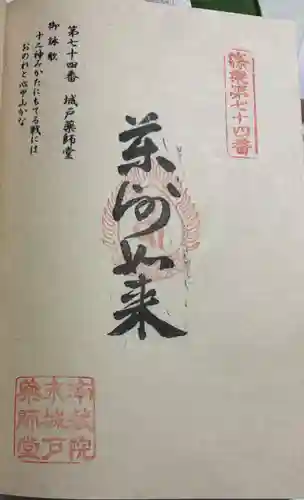 奈良第七十四番
第七十四番 城戸薬師堂
御詠歌
十二神みかたにもてる戦には
おのれと心甲山かな
薬師如来
城戸
薬師堂